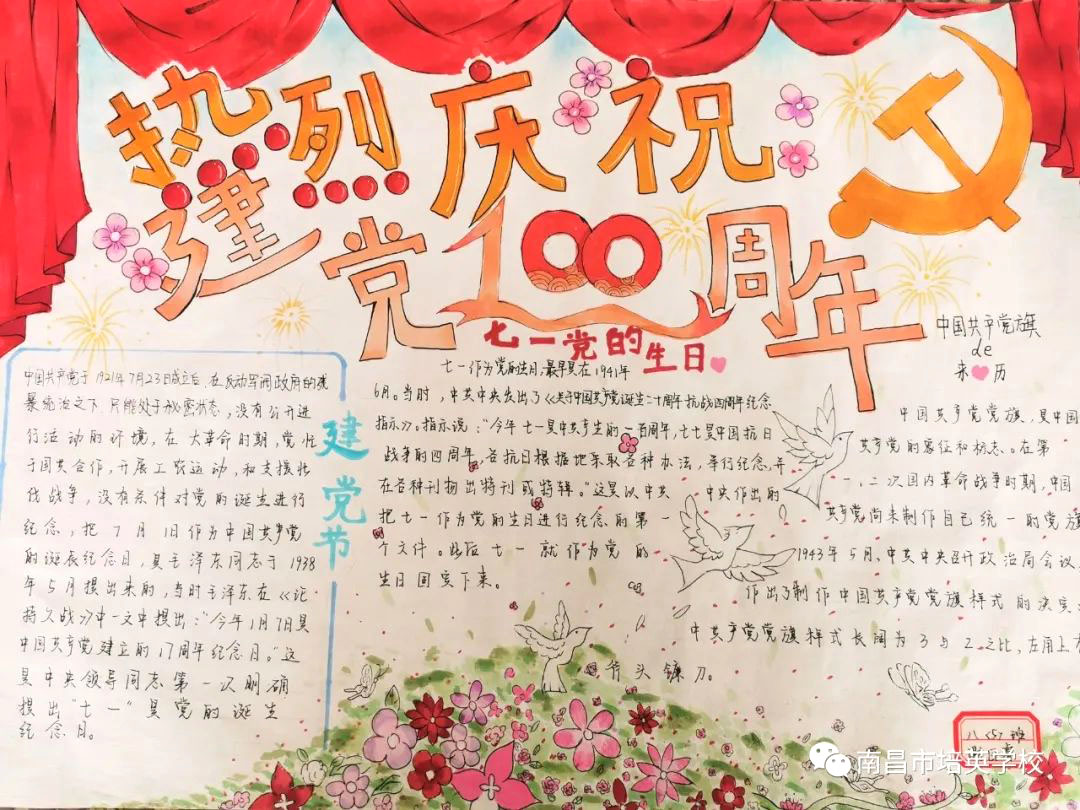 热烈庆祝
建党100周年
七一党的生日
中国共产党旗
de
来历
建党节
中国共产党于1921年7月23日成立后,在反动军阀政府的残
暴统治之下,只能处于秘密状态,没有公开进
行活动的环境,在大革命时期,党忙
于国共合作,开展工农运动,和支援北
伐战争,没有条件对党的诞生进行
纪念,把7月1日作为中国共产党
的诞辰纪念日,是毛泽东同志于1938
年5月提出来的,当时毛泽东在《论
持久战》中一文中提出:“今年1月7日是
中国共产党建立的17周年纪念日。”这
是中央领导同志第一次明确
提出“七一”是党的诞生
纪念日。
七一作为党的生日,最早是在1941年
6月。当时,中共中央发出了《关于中国共产党诞生二十周年抗战四周年纪念
指示》。指示说:“今年七一是中共产生的一百周年,七七是中国抗日
战争的四周年,各抗日根据地采取各种办法,举行纪念,并
在各种刊物出特刊或特辑。”这是以中共中央作出的
把七一作为党的生日进行纪念的第一
个文件。此后七一就作为党的
生日固定下来。
中国共产党党旗,是中国
共产党的象征和标志。在第
一、二次国内革命战争时期,中国
共产党尚未制作自己统一的党旗
1943年5月、中共中央召开政治局会议,
作出了制作中国共产党党旗样式的决定
中共产党党旗样式长阔为3与2之比,左角上有
斧头镰刀。
八〈5〉班
南昌市培英学校